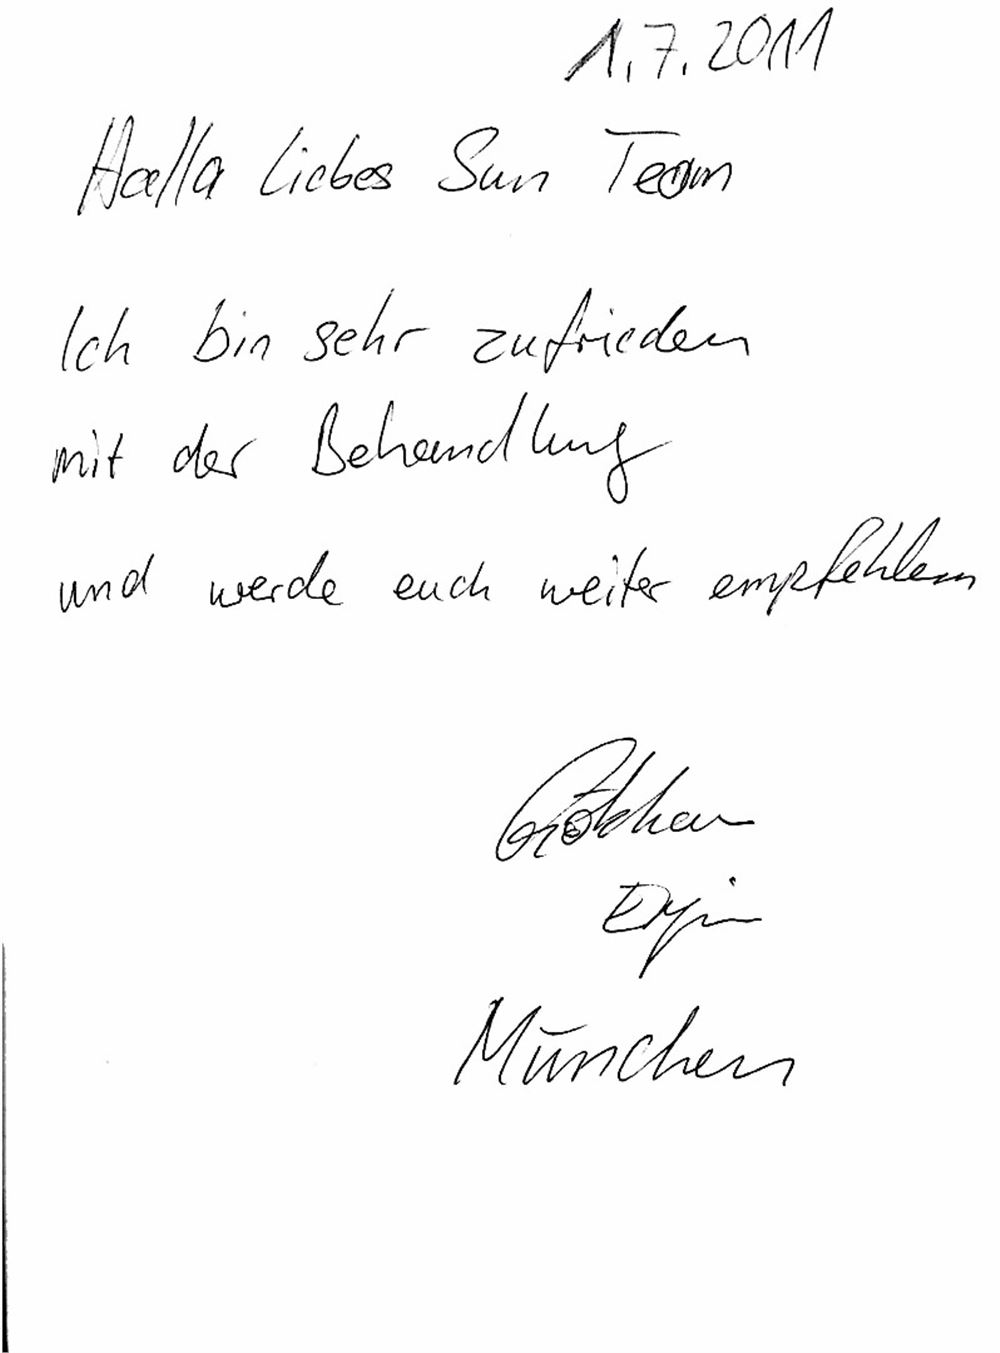 1.7.2011
Hallo liebes Sun Team
Ich bin sehr zufrieden
mit der Behandlung
und werde euch weiter empfehlen
Gökhan
München